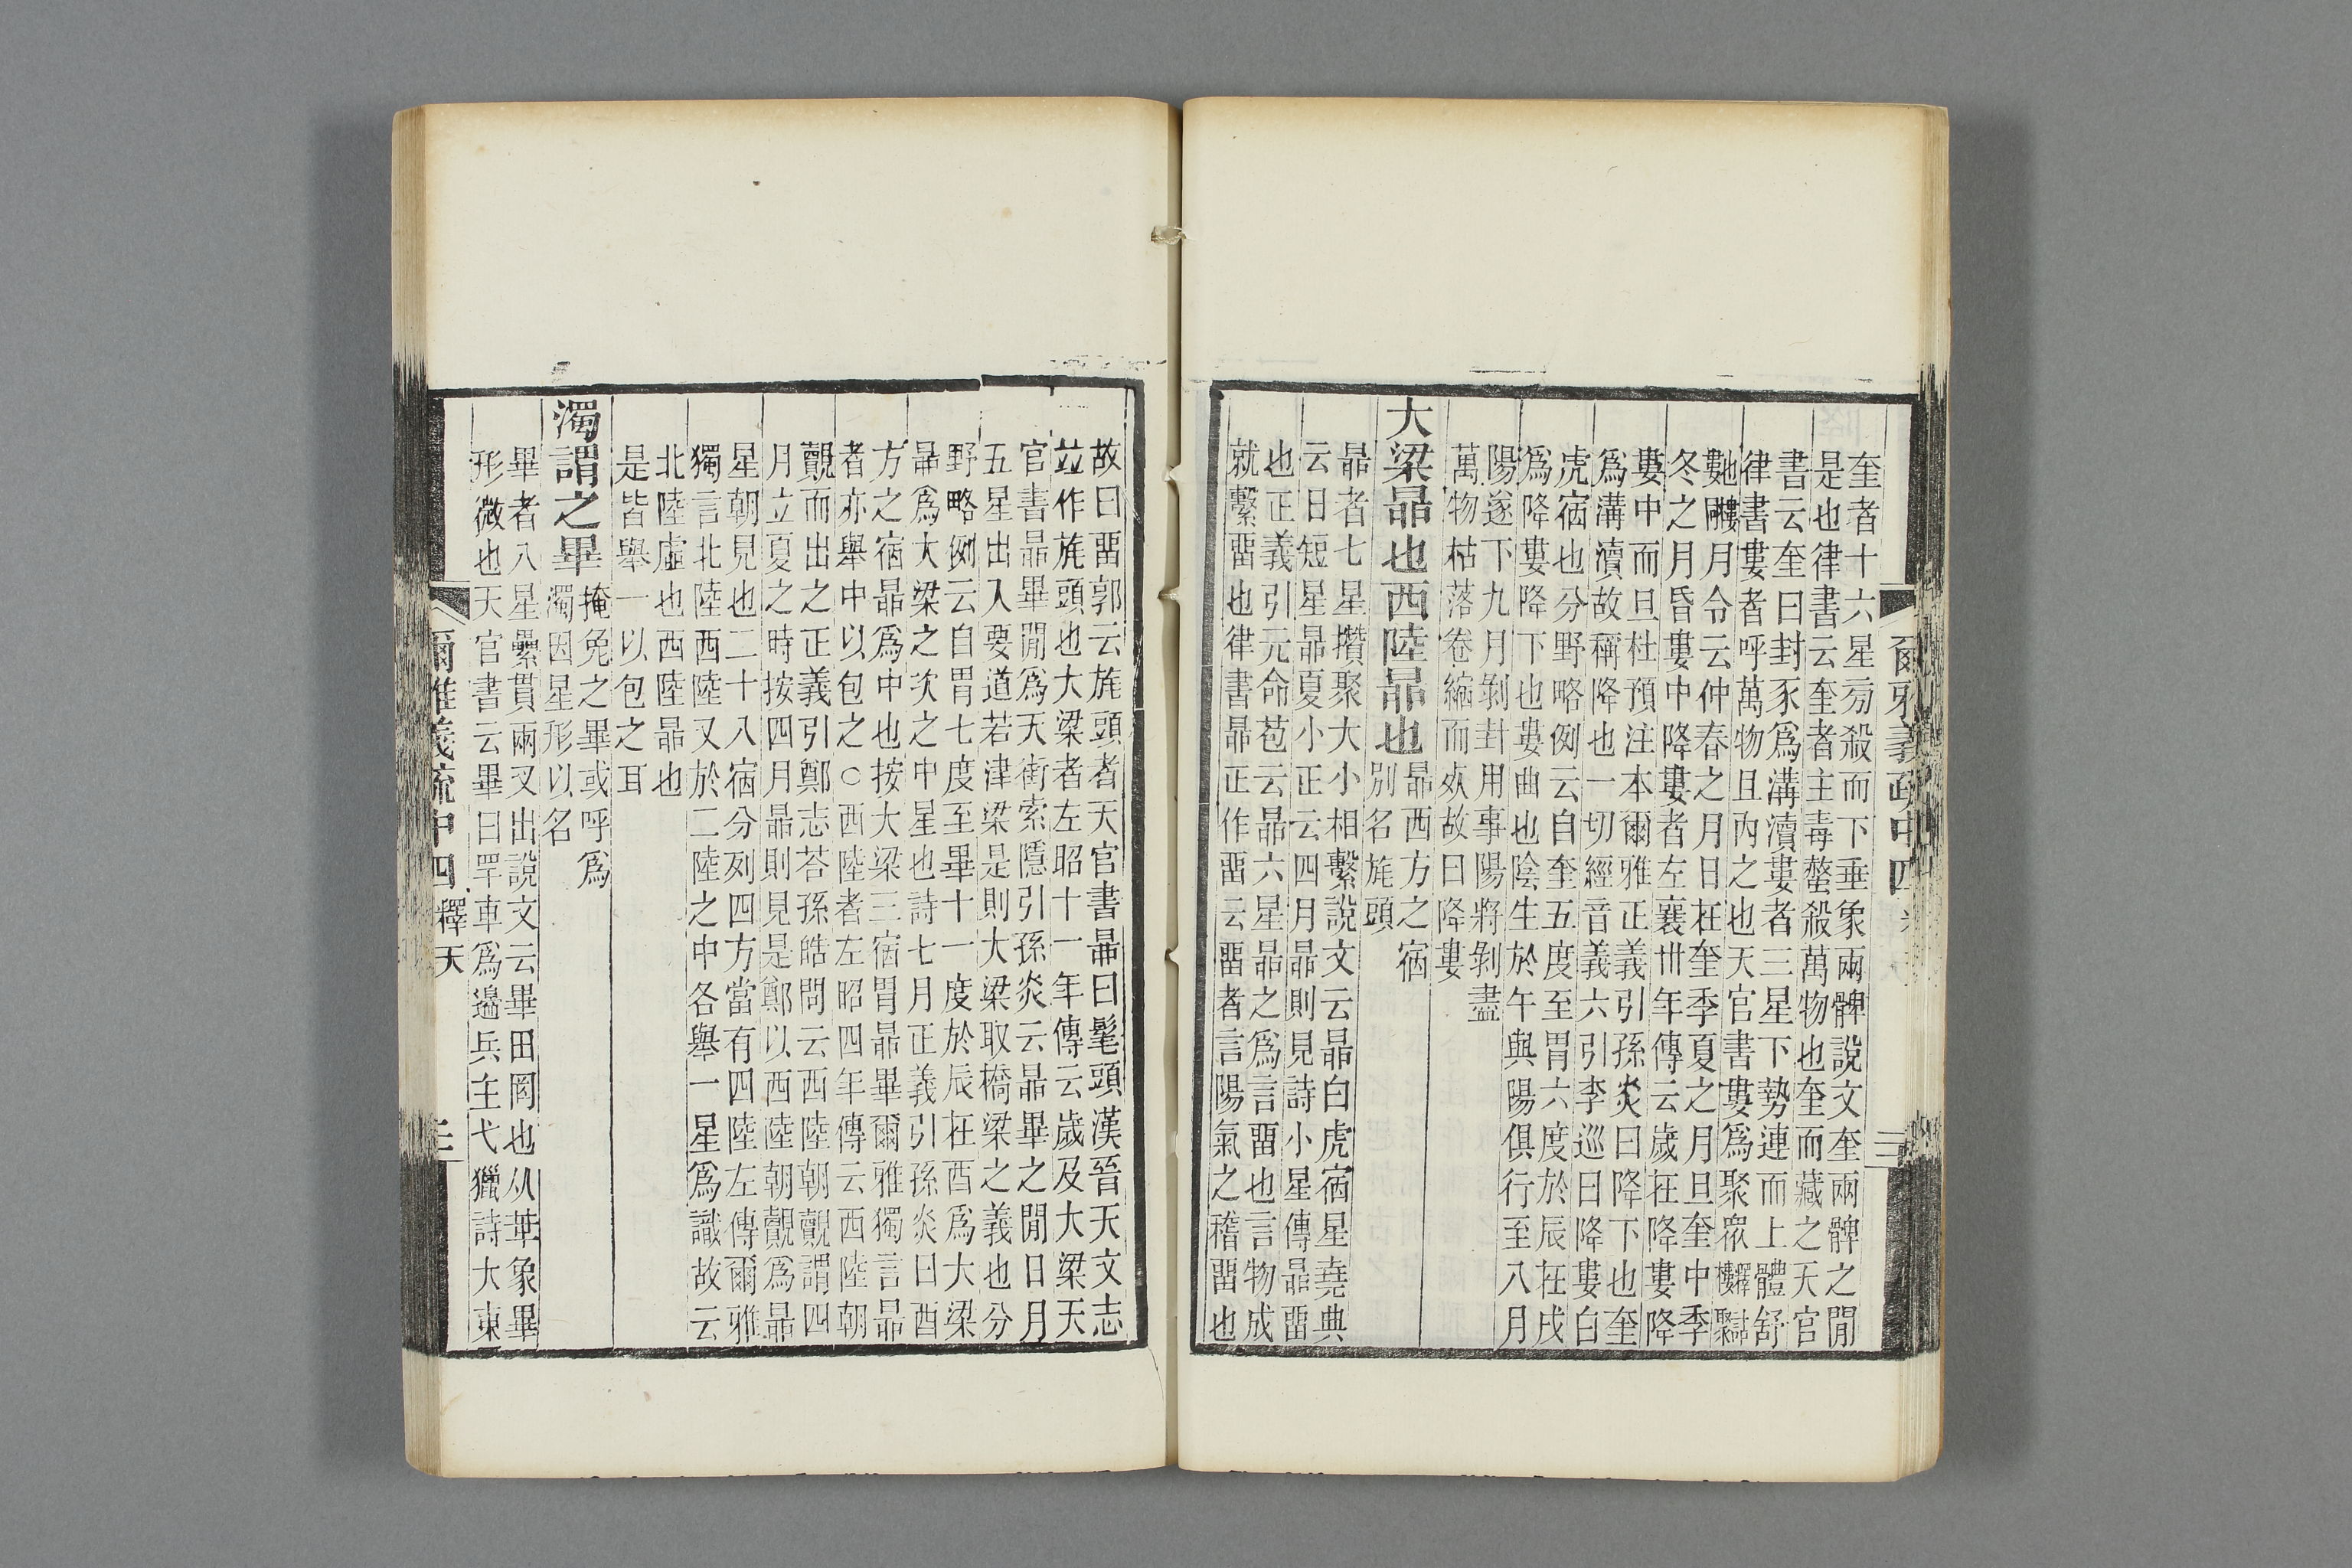 爾雅義疏中四
奎者十六星旁殺而下垂象兩髀說文奎兩髀之閒
是也律書云奎者主毒螫殺萬物也奎而藏之天官
書云奎曰封豕爲溝瀆婁者三星下勢連而上體舒
律書婁者呼萬物且內之也天官書婁爲聚眾
月令云仲春之月日在奎季夏之月旦奎中季
冬之月昏婁中降婁者左襄卅年傳云歲在降婁降
婁中而旦杜預注本爾雅正義引孫炎曰降下也奎
爲溝瀆故稱降也一切經音義六引李巡曰降婁白
虎宿也分野略例云自奎五度至胃六度於辰在戌
爲降婁降下也婁曲也陰生於午與陽俱行至八月
陽遂下九月剝卦用事陽將剝盡
萬物枯落卷縮而死故曰降婁
大梁昴也西陸昴也
昴西方之宿
別名旄頭
昴者七星攢聚大小相繫說文云昴白虎宿星堯典
云日短星昴夏小正云四月昴則見詩小星傳昴畱
也正義引元命苞云昴六星昴之爲言畱也言物成
就繫畱也律書昴正作畱云畱者言陽氣之稽畱也
故曰畱郭云旄頭者天官書昴曰髦頭漢晉天文志
竝作旄頭也大梁者左昭十一年傳云歲及大梁天
官書昴畢閒爲天街索隱引孫炎云昴畢之閒日月
五星出入要道若津梁是則大梁取橋梁之義也分
野略例云自胃七度至畢十一度於辰在酉爲大梁
昴爲大梁之次之中星也詩七月正義引孫炎曰酉
方之宿昴爲中也按大梁三宿胃昴畢爾雅獨言昴
者亦舉中以包之○西陸者左昭四年傳云西陸朝
覿而出之正義引鄭志荅孫皓問云西陸朝覿謂四
月立夏之時按四月昴則見是鄭以西陸朝覿爲昴
星朝見也二十八宿分列四方當有四陸左傳爾雅
獨言北陸西陸又於二陸之中各舉一星爲識故云
北陸虛也西陸昴也
是皆舉一以包之耳
濁謂之畢
掩兔之畢或呼爲
濁因星形以名
畢者八星纍貫兩叉出說文云畢田罔也从𠦒象畢
形微也天官書云畢曰罕車爲邊兵主弋獵詩大東
爾雅義疏中四 釋天